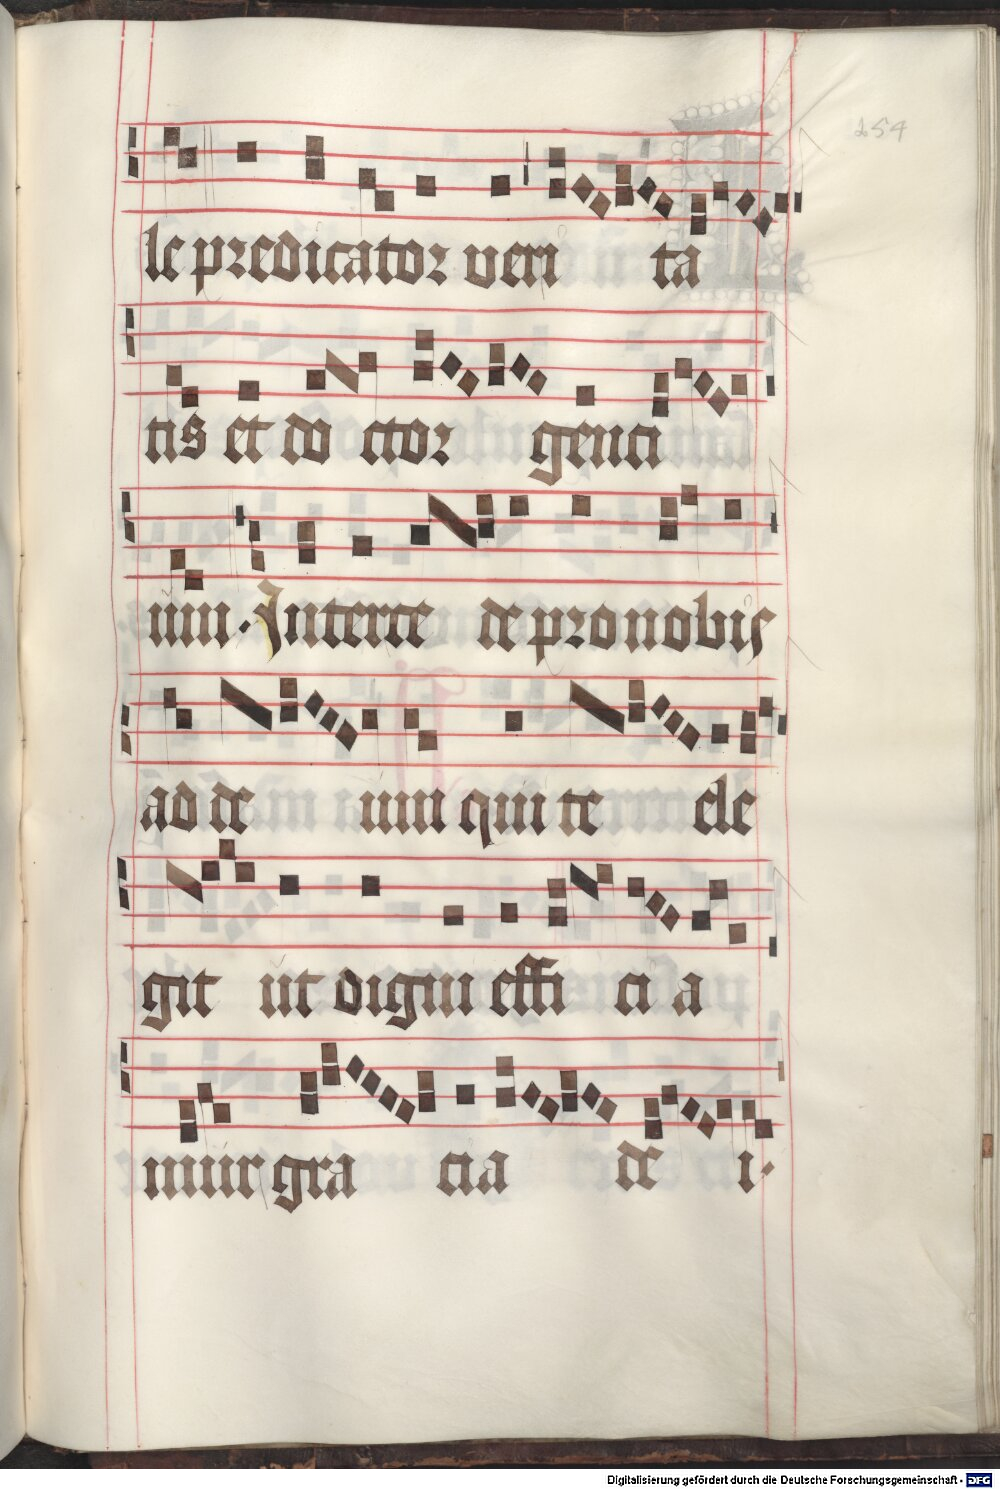 254
le predicator veri ta
tis et do ctor genci
um. Interce de pro nobis
ad de um qui te ele
git ut digni effi ci a
mur gra cia de i.
Digitalisierung gefördert durch die Deutsche Forschungsgemeinschaft - DFG